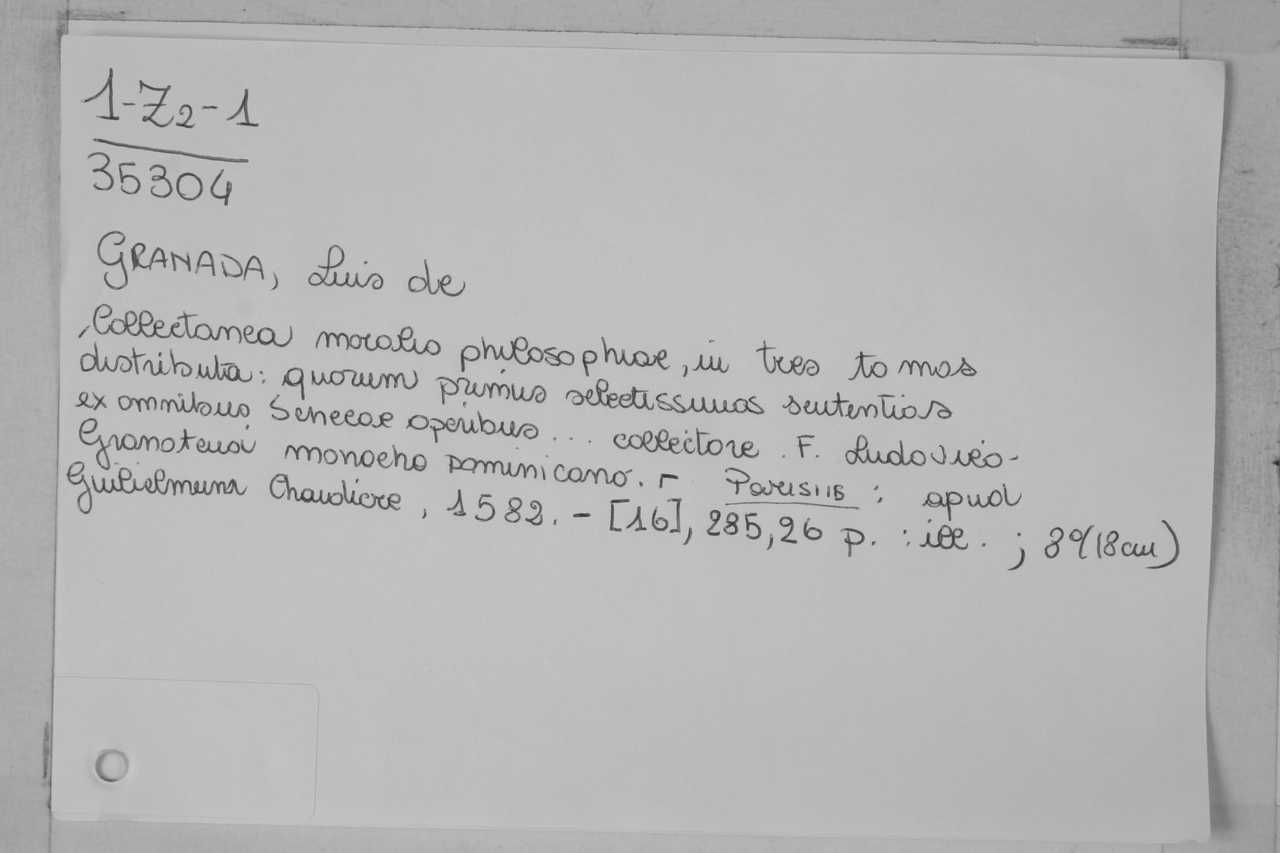 1-Z2-1
35304
GRANADA, Luis de
Collectanea moralis philosophiae, in tres tomos
distributa: quorum primus selectissimas sententias
ex omnibus Senecae operibus... collectore F. Ludovico
Granatensi monacho Dominicano. - Parisiis : apud
Guilielmum Chaudiere, 1582. - [16], 285, 26 p. : ill. ; 8º (18 cm)